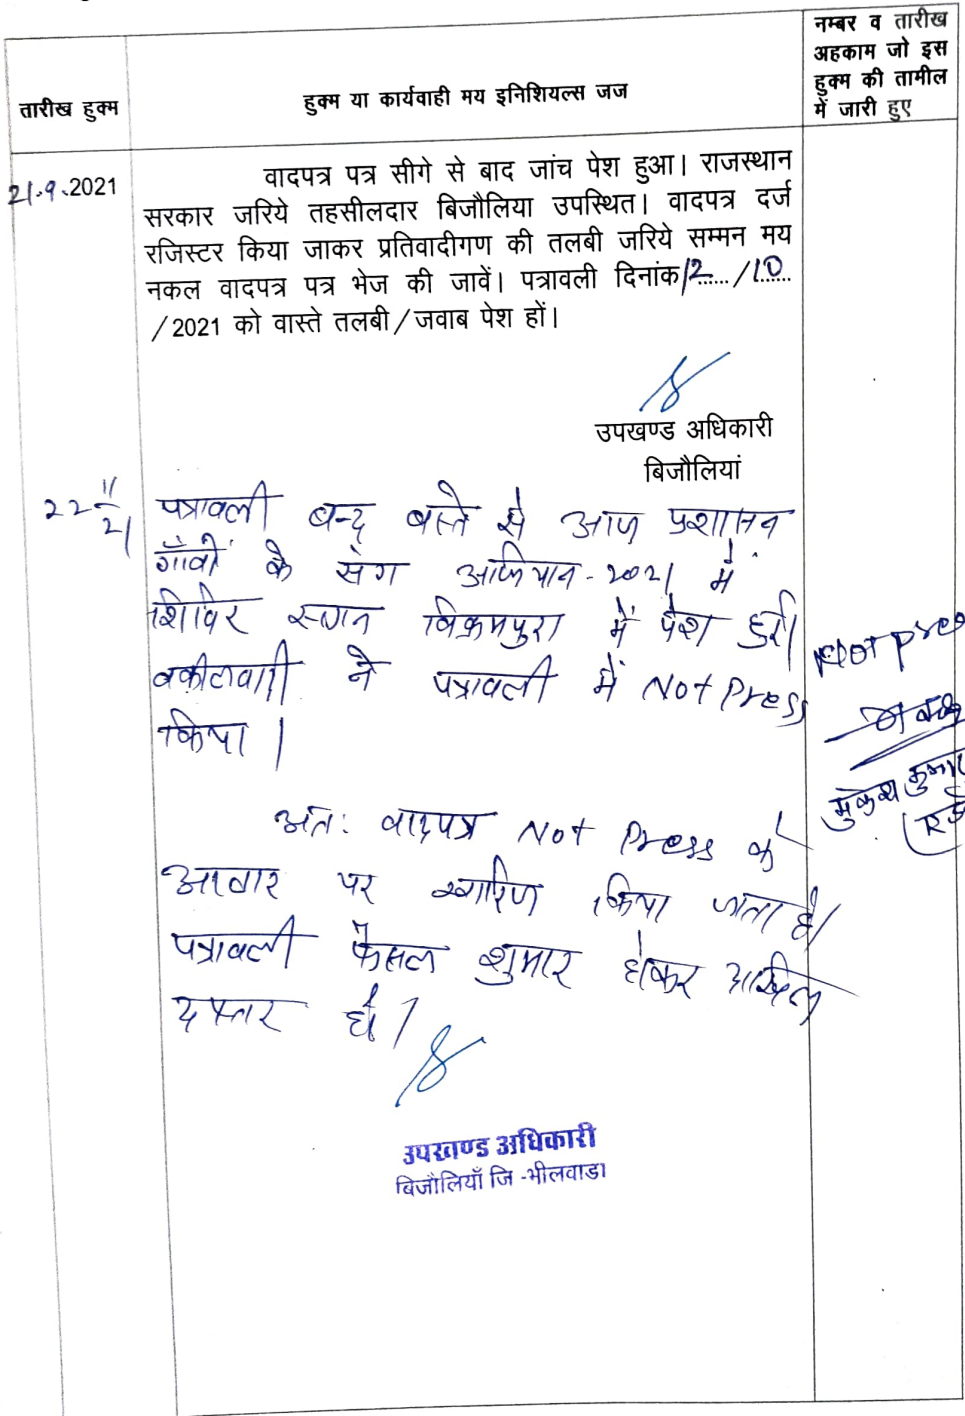 तारीख हुक्म
हुक्म या कार्यवाही मय इनिशियल्स जज
नम्बर व तारीख
अहकाम जो इस
हुक्म की तामील
में जारी हुए
21.9.2021
वादपत्र पत्र सीगे से बाद जांच पेश हुआ। राजस्थान
सरकार जरिये तहसीलदार बिजौलिया उपस्थित। वादपत्र दर्ज
रजिस्टर किया जाकर प्रतिवादीगण की तलबी जरिये सम्मन मय
नकल वादपत्र पत्र भेज की जावें। पत्रावली दिनांक 12...../10.....
/2021 को वास्ते तलबी/जवाब पेश हों।
उपखण्ड अधिकारी
बिजौलियां
22/11/21
पत्रावली बन्द बस्ते से आज प्रशासन
गाँवों के संग अभियान-2021 में
शिविर स्थान विक्रमपुरा में पेश हुई।
वकीलवादी ने पत्रावली में Not Press
किया।
Not pre
मुकेश कुमार
अतः वादपत्र Not Press के
आधार पर खारिज किया जाता है।
पत्रावली फैसल शुमार होकर दाखिल
दफ्तर हो।
उपखण्ड अधिकारी
बिजौलियाँ जि -भीलवाडा